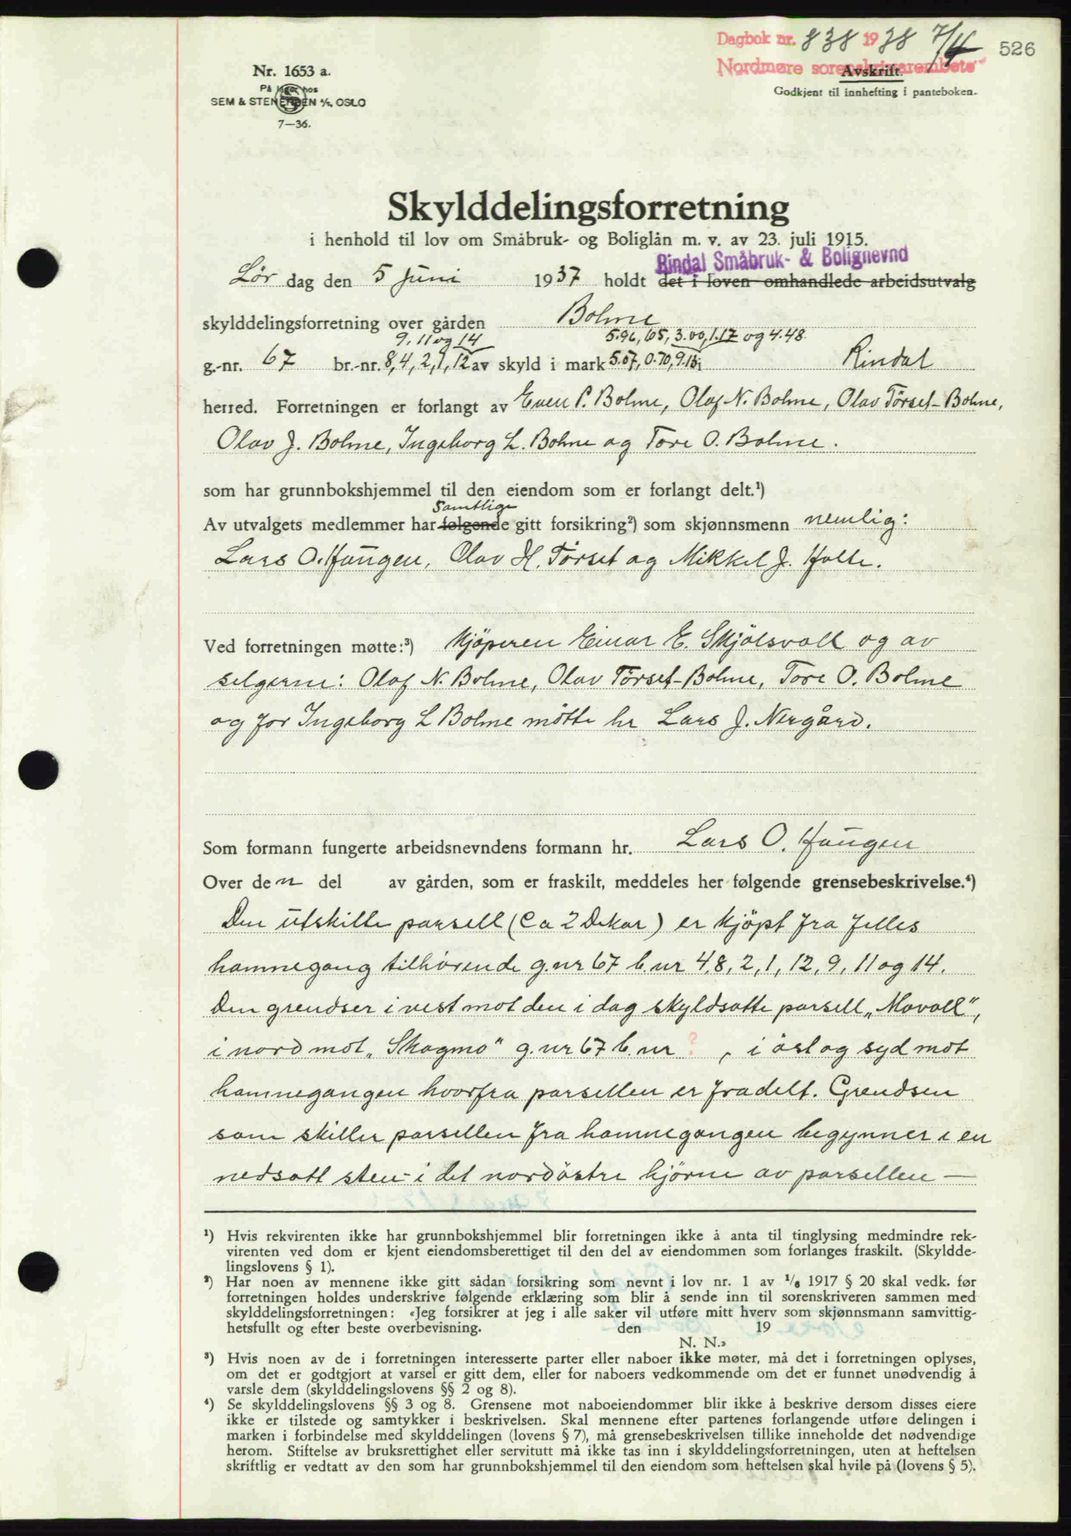 Dagbok nr. 838 1938 7/4 526
Nordmøre sorenskriverembete
Nr. 1653 a.
Avskrift.
På lager hos
Godkjent til innhefting i panteboken.
SEM & STENERSEN A/S, OSLO
7—36.
Skylddelingsforretning
i henhold til lov om Småbruk- og Boliglån m. v. av 23. juli 1915.
Rindal Småbruk- & Bolignevnd
Lør dag den 5 juni 1937 holdt det i loven omhandlede arbeidsutvalg
skylddelingsforretning over gården Bolme
9, 11 og 14 5.96, 65, 3.00, 1.17 og 4.48
g.-nr. 67 br.-nr. 8, 4, 2, 1, 12 av skyld i mark 5.07, 0.70, 9.13 i Rindal
herred. Forretningen er forlangt av Even P. Bolme, Olaf N. Bolme, Olav Tørset-Bolme,
Olav J. Bolme, Ingeborg L. Bolme og Tore O. Bolme.
som har grunnbokshjemmel til den eiendom som er forlangt delt.¹)
samtlige
Av utvalgets medlemmer har følgende gitt forsikring²) som skjønnsmenn nemlig:
Lars O. Haugen, Olav H. Tørset og Mikkel J. Holte.
Ved forretningen møtte:³) Kjöperen Einar E. Skjölsvoll og av
selgerne: Olaf N. Bolme, Olav Tørset-Bolme, Tore O. Bolme
og for Ingeborg L Bolme mötte hr Lars J. Nergård.
Som formann fungerte arbeidsnevndens formann hr. Lars O. Haugen
Over den del av gården, som er fraskilt, meddeles her følgende grensebeskrivelse.⁴)
Den utskilte parsell (Ca 2 Dekar) er kjöpt fra felles
hamnegang tilhörende g.nr 67 b.nr 4, 8, 2, 1, 12, 9, 11 og 14.
Den grendser i vest mot den i dag skyldsatte parsell „Movoll",
i nord mot „Skogmo" g.nr 67 b.nr ? , i öst og syd mot
hamnegangen hvorfra parsellen er fradelt. Grendsen
som skiller parsellen fra hamnegangen begynner i en
nedsatt sten i det nordöstre hjörne av parsellen —
¹) Hvis rekvirenten ikke har grunnbokshjemmel blir forretningen ikke å anta til tinglysing medmindre rek-
virenten ved dom er kjent eiendomsberettiget til den del av eiendommen som forlanges fraskilt. (Skyldde-
lingslovens § 1).
²) Har noen av mennene ikke gitt sådan forsikring som nevnt i lov nr. 1 av 1/6 1917 § 20 skal vedk. før
forretningen holdes underskrive følgende erklæring som blir å sende inn til sorenskriveren sammen med
skylddelingsforretningen: «Jeg forsikrer at jeg i alle saker vil utføre mitt hverv som skjønnsmann samvittig-
hetsfullt og efter beste overbevisning. den 19
N. N.»
³) Hvis noen av de i forretningen interesserte parter eller naboer ikke møter, må det i forretningen oplyses,
om det er godtgjort at varsel er gitt dem, eller for naboers vedkommende om det er funnet unødvendig å
varsle dem (skylddelingslovens §§ 2 og 8).
⁴) Se skylddelingslovens §§ 3 og 8. Grensene mot naboeiendommer blir ikke å beskrive dersom disses eiere
ikke er tilstede og samtykker i beskrivelsen. Skal mennene efter partenes forlangende utføre delingen i
marken i forbindelse med skylddelingen (lovens § 7), må grensebeskrivelsen tillike inneholde det nødvendige
herom. Stiftelse av bruksrettighet eller servitutt må ikke tas inn i skylddelingsforretningen, uten at heftelsen
skriftlig er vedtatt av den som har grunnbokshjemmel til den eiendom som heftelsen skal hvile på (lovens § 5).